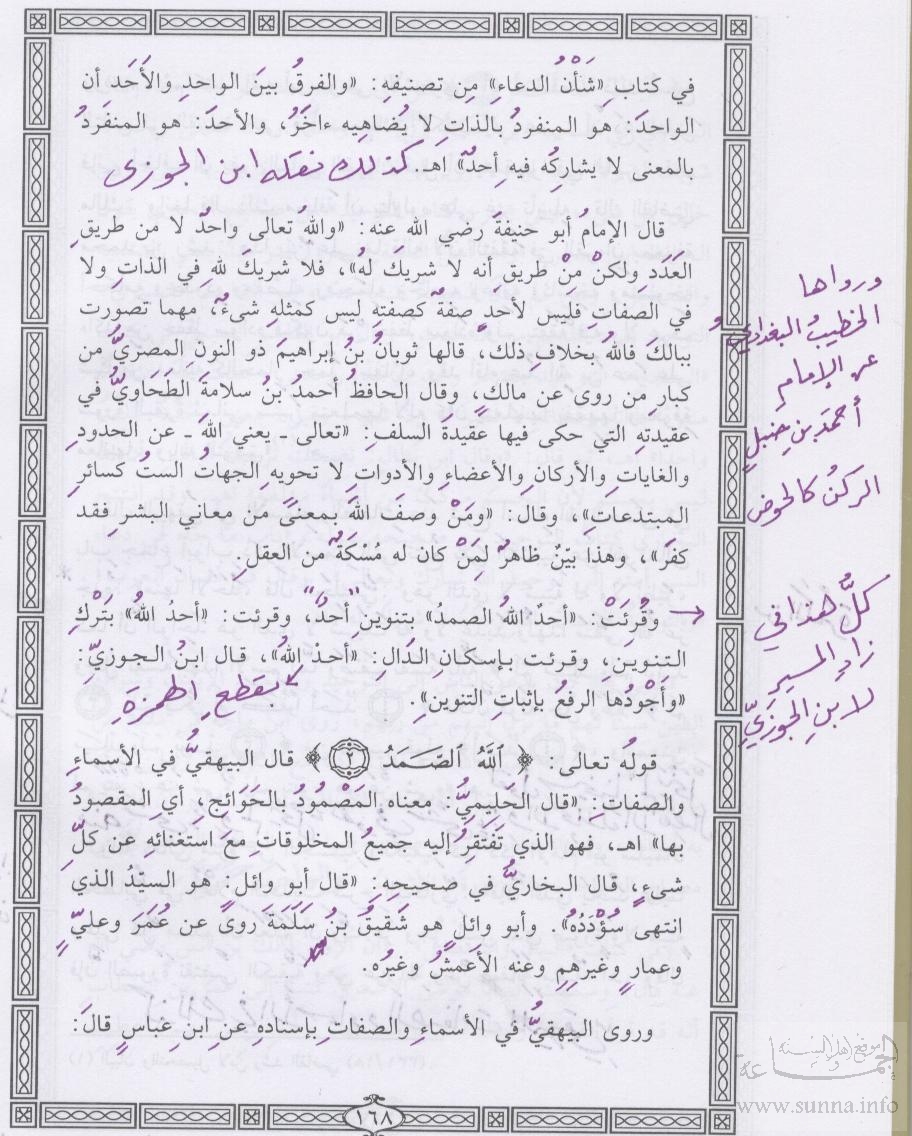 في كتاب «شَأْنُ الدعاءِ» مِن تصنيفِهِ: «والفرقُ بينَ الواحدِ والأَحَد أن
الواحدَ: هو المنفردُ بالذاتِ لا يُضاهِيه ءاخَرُ، والأحدَ: هو المنفردُ
بالمعنى لا يشارِكُه فيهِ أحدٌ» اهـ. كذلك نقله ابن الجوزي
قال الإمامُ أبو حنيفةَ رضي الله عنه: «والله تعالى واحدٌ لا من طريقِ
العَدَدِ ولكنْ مِنْ طريقِ أنه لا شريك لهُ»، فلا شريكَ للهِ في الذات ولا
في الصفات فليس لأحدٍ صفةٌ كصفتِهِ ليس كمثلِهِ شىءٌ، مهما تصورت
ببالكَ فاللهُ بخلافِ ذلك، قالها ثوبانُ بنُ إبراهيمَ ذو النون المصريُّ من
كبار من روى عن مالكٍ، وقال الحافظُ أحمدُ بنُ سلامةَ الطحاويُّ في
عقيدته التي حكى فيها عقيدةَ السلف: «تعالى ـ يعني اللهَ ـ عن الحدودِ
والغاياتِ والأركان والأعضاءِ والأدوات لا تحويهِ الجهاتُ الستُّ كسائرِ
المبتدعاتِ»، وقال: «ومَنْ وصفَ اللهَ بمعنًى من معاني البشرِ فقد
كفرَ»، وهذا بيّنٌ ظاهرٌ لِمَنْ كان له مُسْكَةٌ من العقلِ
وقُرِئَتْ: «أحدٌ اللهُ الصمدُ» بتنوينِ "أحدٌ"، وقرئت: «أحدُ اللهُ» بِتَرْكِ
التنوينِ، وقرئت بإسكانِ الدالِ: «أحدْ اللهُ»، قال ابنُ الجوزيِّ:
«وأجْوَدُها الرفعُ بإثباتِ التنوينِ». بقطعِ الهمزةِ
قولُه تعالى: ﴿ ٱللَّهُ ٱلصَّمَدُ ٢ ﴾ قال البيهقيُّ في الأسماءِ
والصفاتِ: «قال الحَلِيمِيُّ: معناه المَصْمُودُ بالحَوَائِجِ، أي المقصودُ
بها» اهـ، فهو الذي تَفْتَقِرُ إليه جميعُ المخلوقاتِ معَ استغنائِهِ عن كلِّ
شىءٍ، قال البخاريُّ في صحيحِهِ: «قال أبو وائلٍ: هو السيّدُ الذي
انتهى سُؤْدَدُهُ». وأبو وائلٍ هو شَقِيقُ بنُ سَلَمَةَ روَى عن عُمَرَ وعليٍّ
وعمارٍ وغيرِهِمِ وعنه الأعمشُ وغيرُه.
وروى البيهقيُّ في الأسماءِ والصفاتِ بإسنادِهِ عنِ ابنِ عباسٍ قالَ:
ورواها
الخطيبُ البغداديُّ
عن الإمامِ
أحمدَ بنِ حنبلٍ
الركنُ كالحوض
كلُّ هذا في
زادِ المسيرِ
لابنِ الجوزيِّ
١٦٨
موقع أهل السنة
الجماعة
www.sunna.info